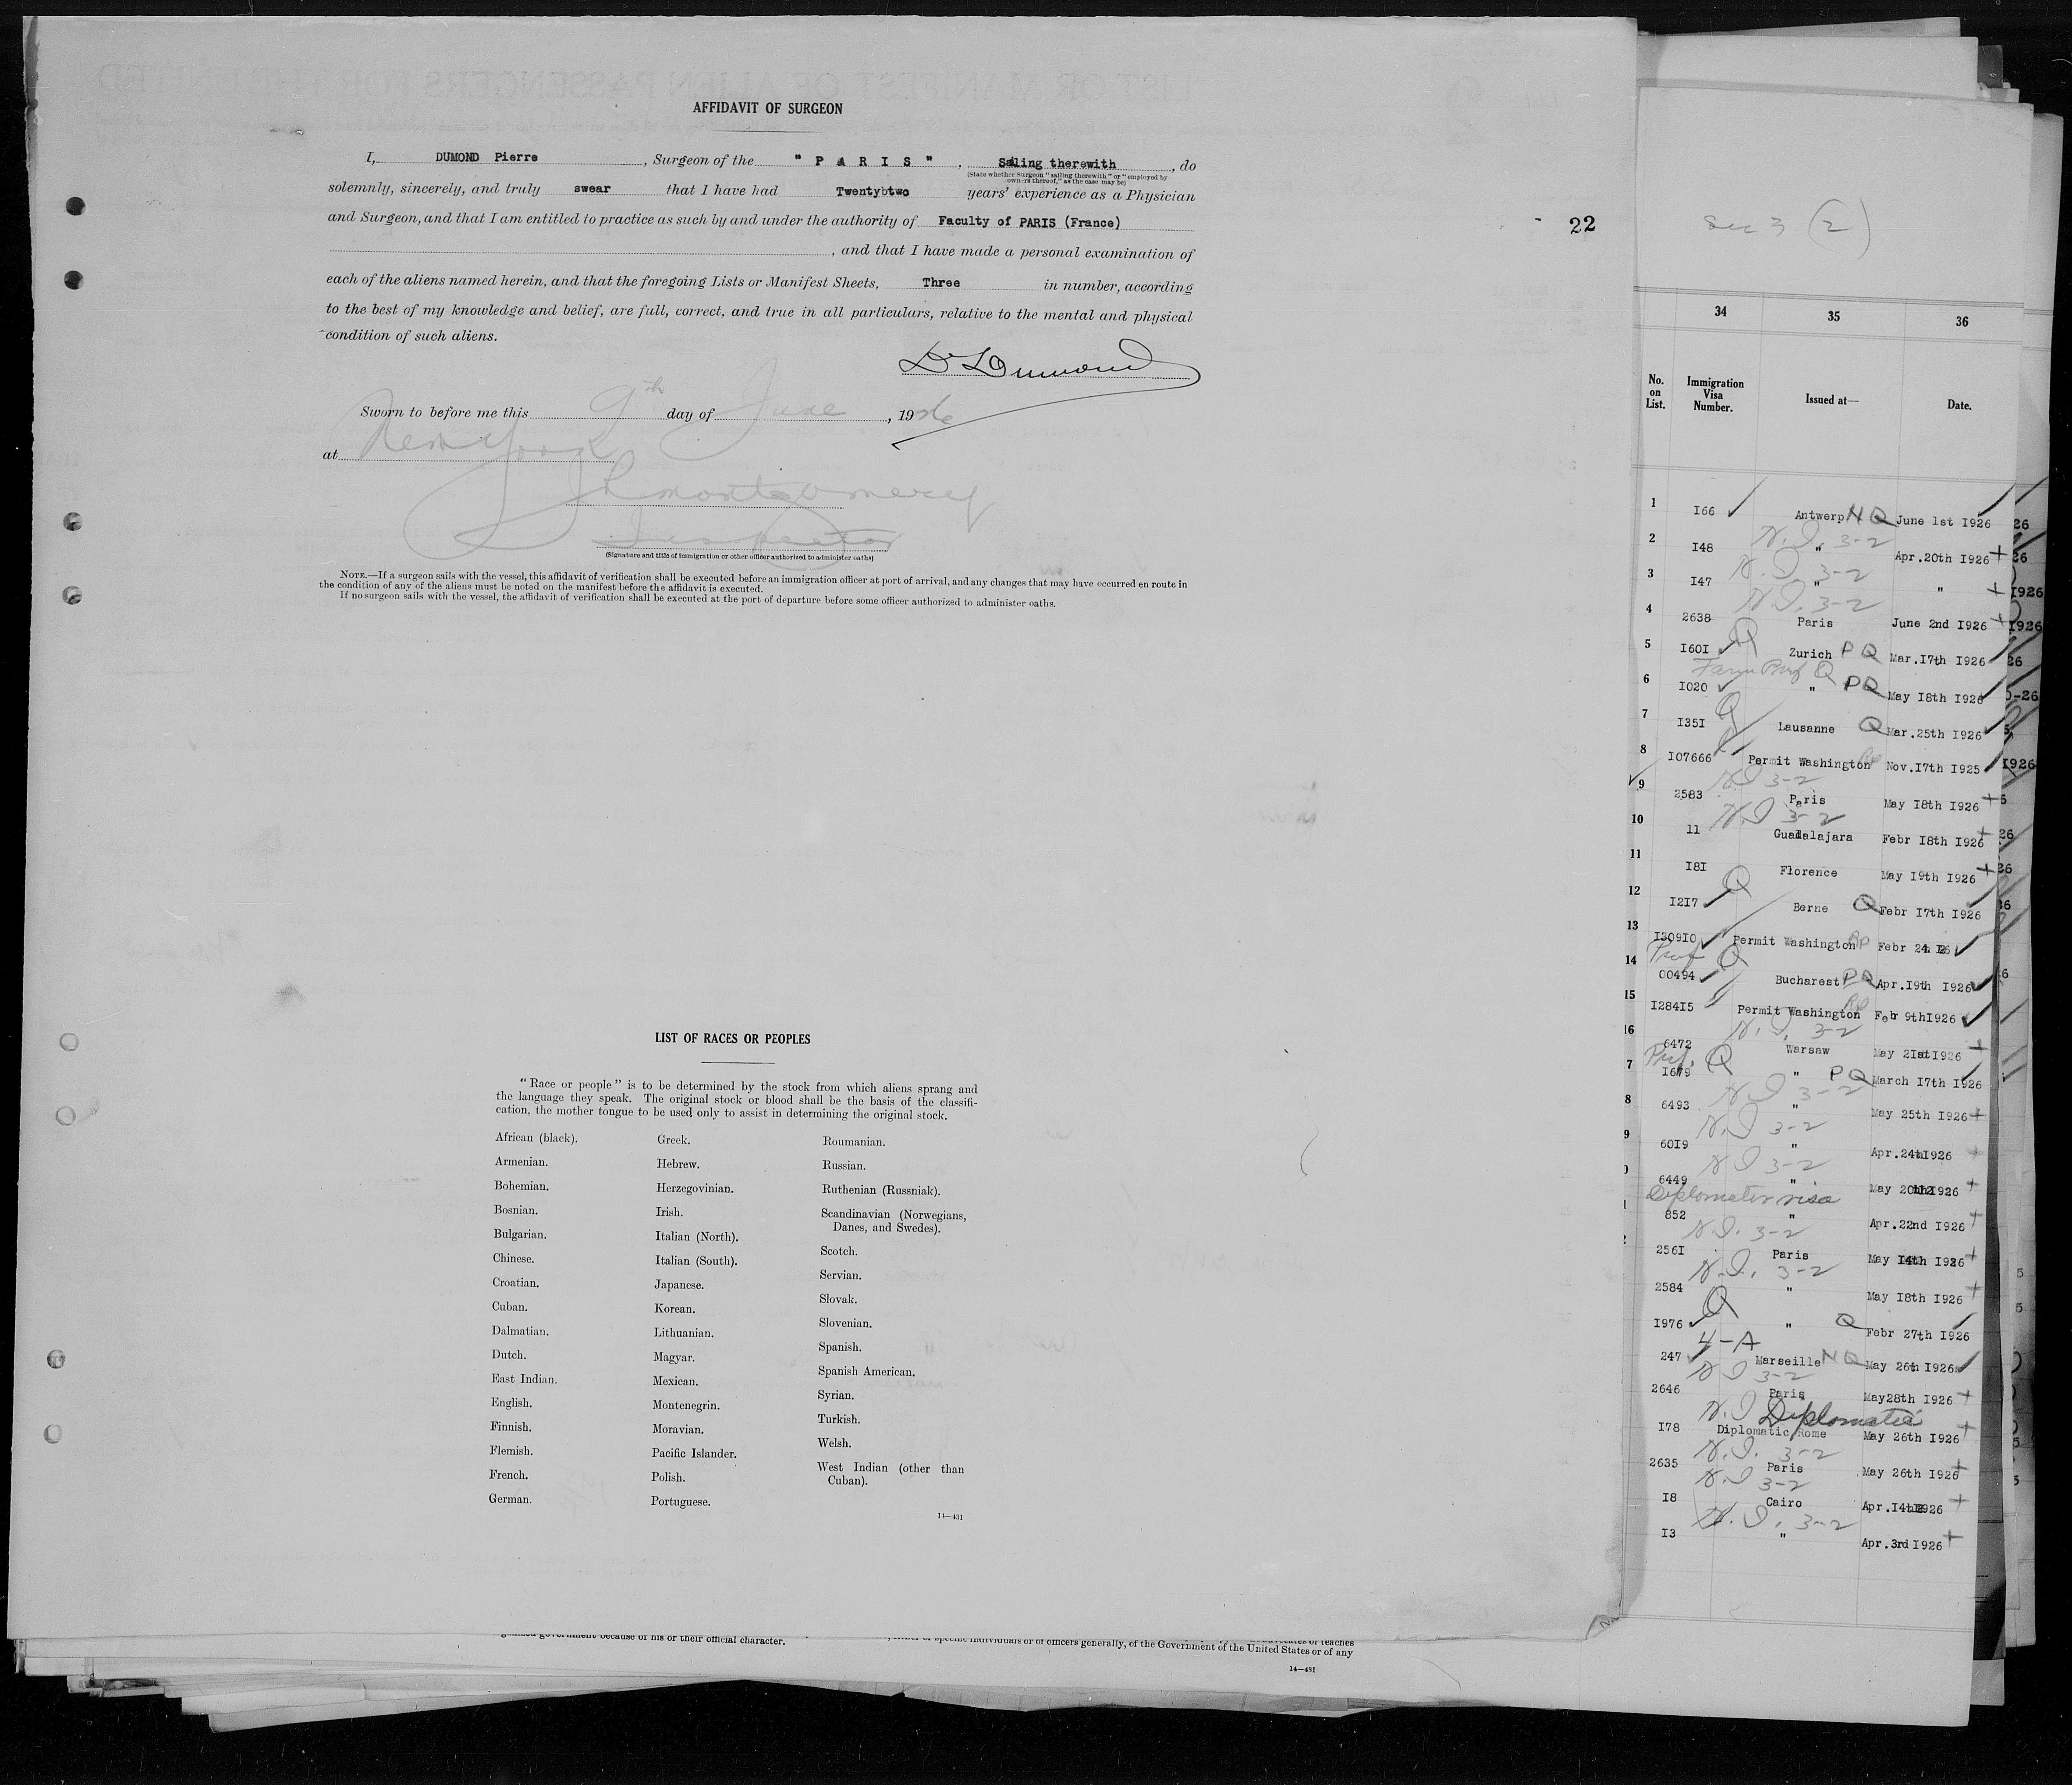 AFFIDAVIT OF SURGEON
I, DUMOND Pierre , Surgeon of the " P A R I S " , Sailing therewith , do
(State whether Surgeon "sailing therewith" or "employed by owners thereof," as the case may be)
solemnly, sincerely, and truly swear that I have had Twentybtwo years' experience as a Physician
and Surgeon, and that I am entitled to practice as such by and under the authority of Faculty of PARIS (France)
, and that I have made a personal examination of
each of the aliens named herein, and that the foregoing Lists or Manifest Sheets, Three in number, according
to the best of my knowledge and belief, are full, correct, and true in all particulars, relative to the mental and physical
condition of such aliens.
Sworn to before me this 9th day of June , 1926
at New York
Montgomery
Inspector
(Signature and title of immigration or other officer authorized to administer oaths)
NOTE.—If a surgeon sails with the vessel, this affidavit of verification shall be executed before an immigration officer at port of arrival, and any changes that may have occurred en route in
the condition of any of the aliens must be noted on the manifest before the affidavit is executed.
If no surgeon sails with the vessel, the affidavit of verification shall be executed at the port of departure before some officer authorized to administer oaths.
22
LIST OF RACES OR PEOPLES
"Race or people" is to be determined by the stock from which aliens sprang and
the language they speak. The original stock or blood shall be the basis of the classifi-
cation, the mother tongue to be used only to assist in determining the original stock.
African (black).
Armenian.
Bohemian.
Bosnian.
Bulgarian.
Chinese.
Croatian.
Cuban.
Dalmatian.
Dutch.
East Indian.
English.
Finnish.
Flemish.
French.
German.
Greek.
Hebrew.
Herzegovinian.
Irish.
Italian (North).
Italian (South).
Japanese.
Korean.
Lithuanian.
Magyar.
Mexican.
Montenegrin.
Moravian.
Pacific Islander.
Polish.
Portuguese.
Roumanian.
Russian.
Ruthenian (Russniak).
Scandinavian (Norwegians,
Danes, and Swedes).
Scotch.
Servian.
Slovak.
Slovenian.
Spanish.
Spanish American.
Syrian.
Turkish.
Welsh.
West Indian (other than
Cuban).
14—431
government because of his or their official character.
specific individuals or of officers generally, of the Government of the United States or of any
14—431
Sec 3 (2)
34 35 36
No. on List. Immigration Visa Number. Issued at— Date.
1 I66 Antwerp NQ June 1st I926
N.I. 3-2
2 I48 " Apr.20th I926
N.I 3-2
3 I47 " "
N.I. 3-2
4 2638 Paris June 2nd I926
Q
5 I60I Zurich PQ Mar.I7th I926
Q
6 I020 " PQ May I8th I926
Q
7 I35I Lausanne Q Mar.25th I926
8 I07666 Permit Washington Rp Nov.I7th I925
N I 3-2
9 2583 Paris May I8th I926
N I 3-2
10 11 Guadalajara Febr I8th I926
11 I8I Florence May I9th I926
Q
12 I2I7 Berne Q Febr I7th I926
13 I309I0 Permit Washington Rp Febr
Pref Q
14 00494 Bucharest PQ Apr.I9th I926
15 I284I5 Permit Washington Rp Febr 9th I926
N.I. 3-2
16 6472 Warsaw May 2Ist I926
Pref. Q
7 I679 " PQ March I7th I926
N I 3-2
8 6493 " May 25th I926
N.I 3-2
9 60I9 " Apr.24th I926
N I 3-2
6449 " May 20th I926
Diplomatic visa
852 " Apr.22nd I926
N.I. 3-2
256I Paris May 14th I926
N.I. 3-2
2584 " May I8th I926
Q
I976 " Q Febr 27th I926
4-A
247 Marseille NQ May 26th I926
N I 3-2
2646 Paris May28th I926
N.I Diplomatic
I78 Diplomatic Rome May 26th I926
N.I. 3-2
2635 Paris May 26th I926
N.I 3-2
I8 Cairo Apr.I4th I926
N.I. 3-2
I3 " Apr.3rd I926